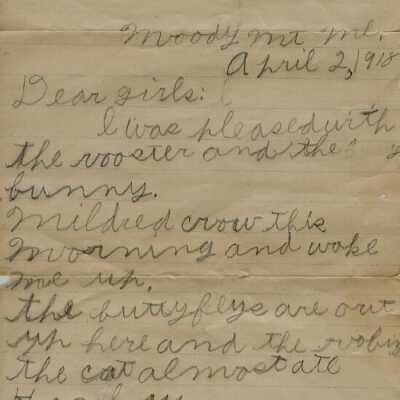 Moody Mt Me.
April 2, 1918
Dear girls:
I was pleased with
the rooster and the
bunny.
Mildred crow this
morning and woke
me up.
the buttyflys are out
up here and the robins
the cat almost ate